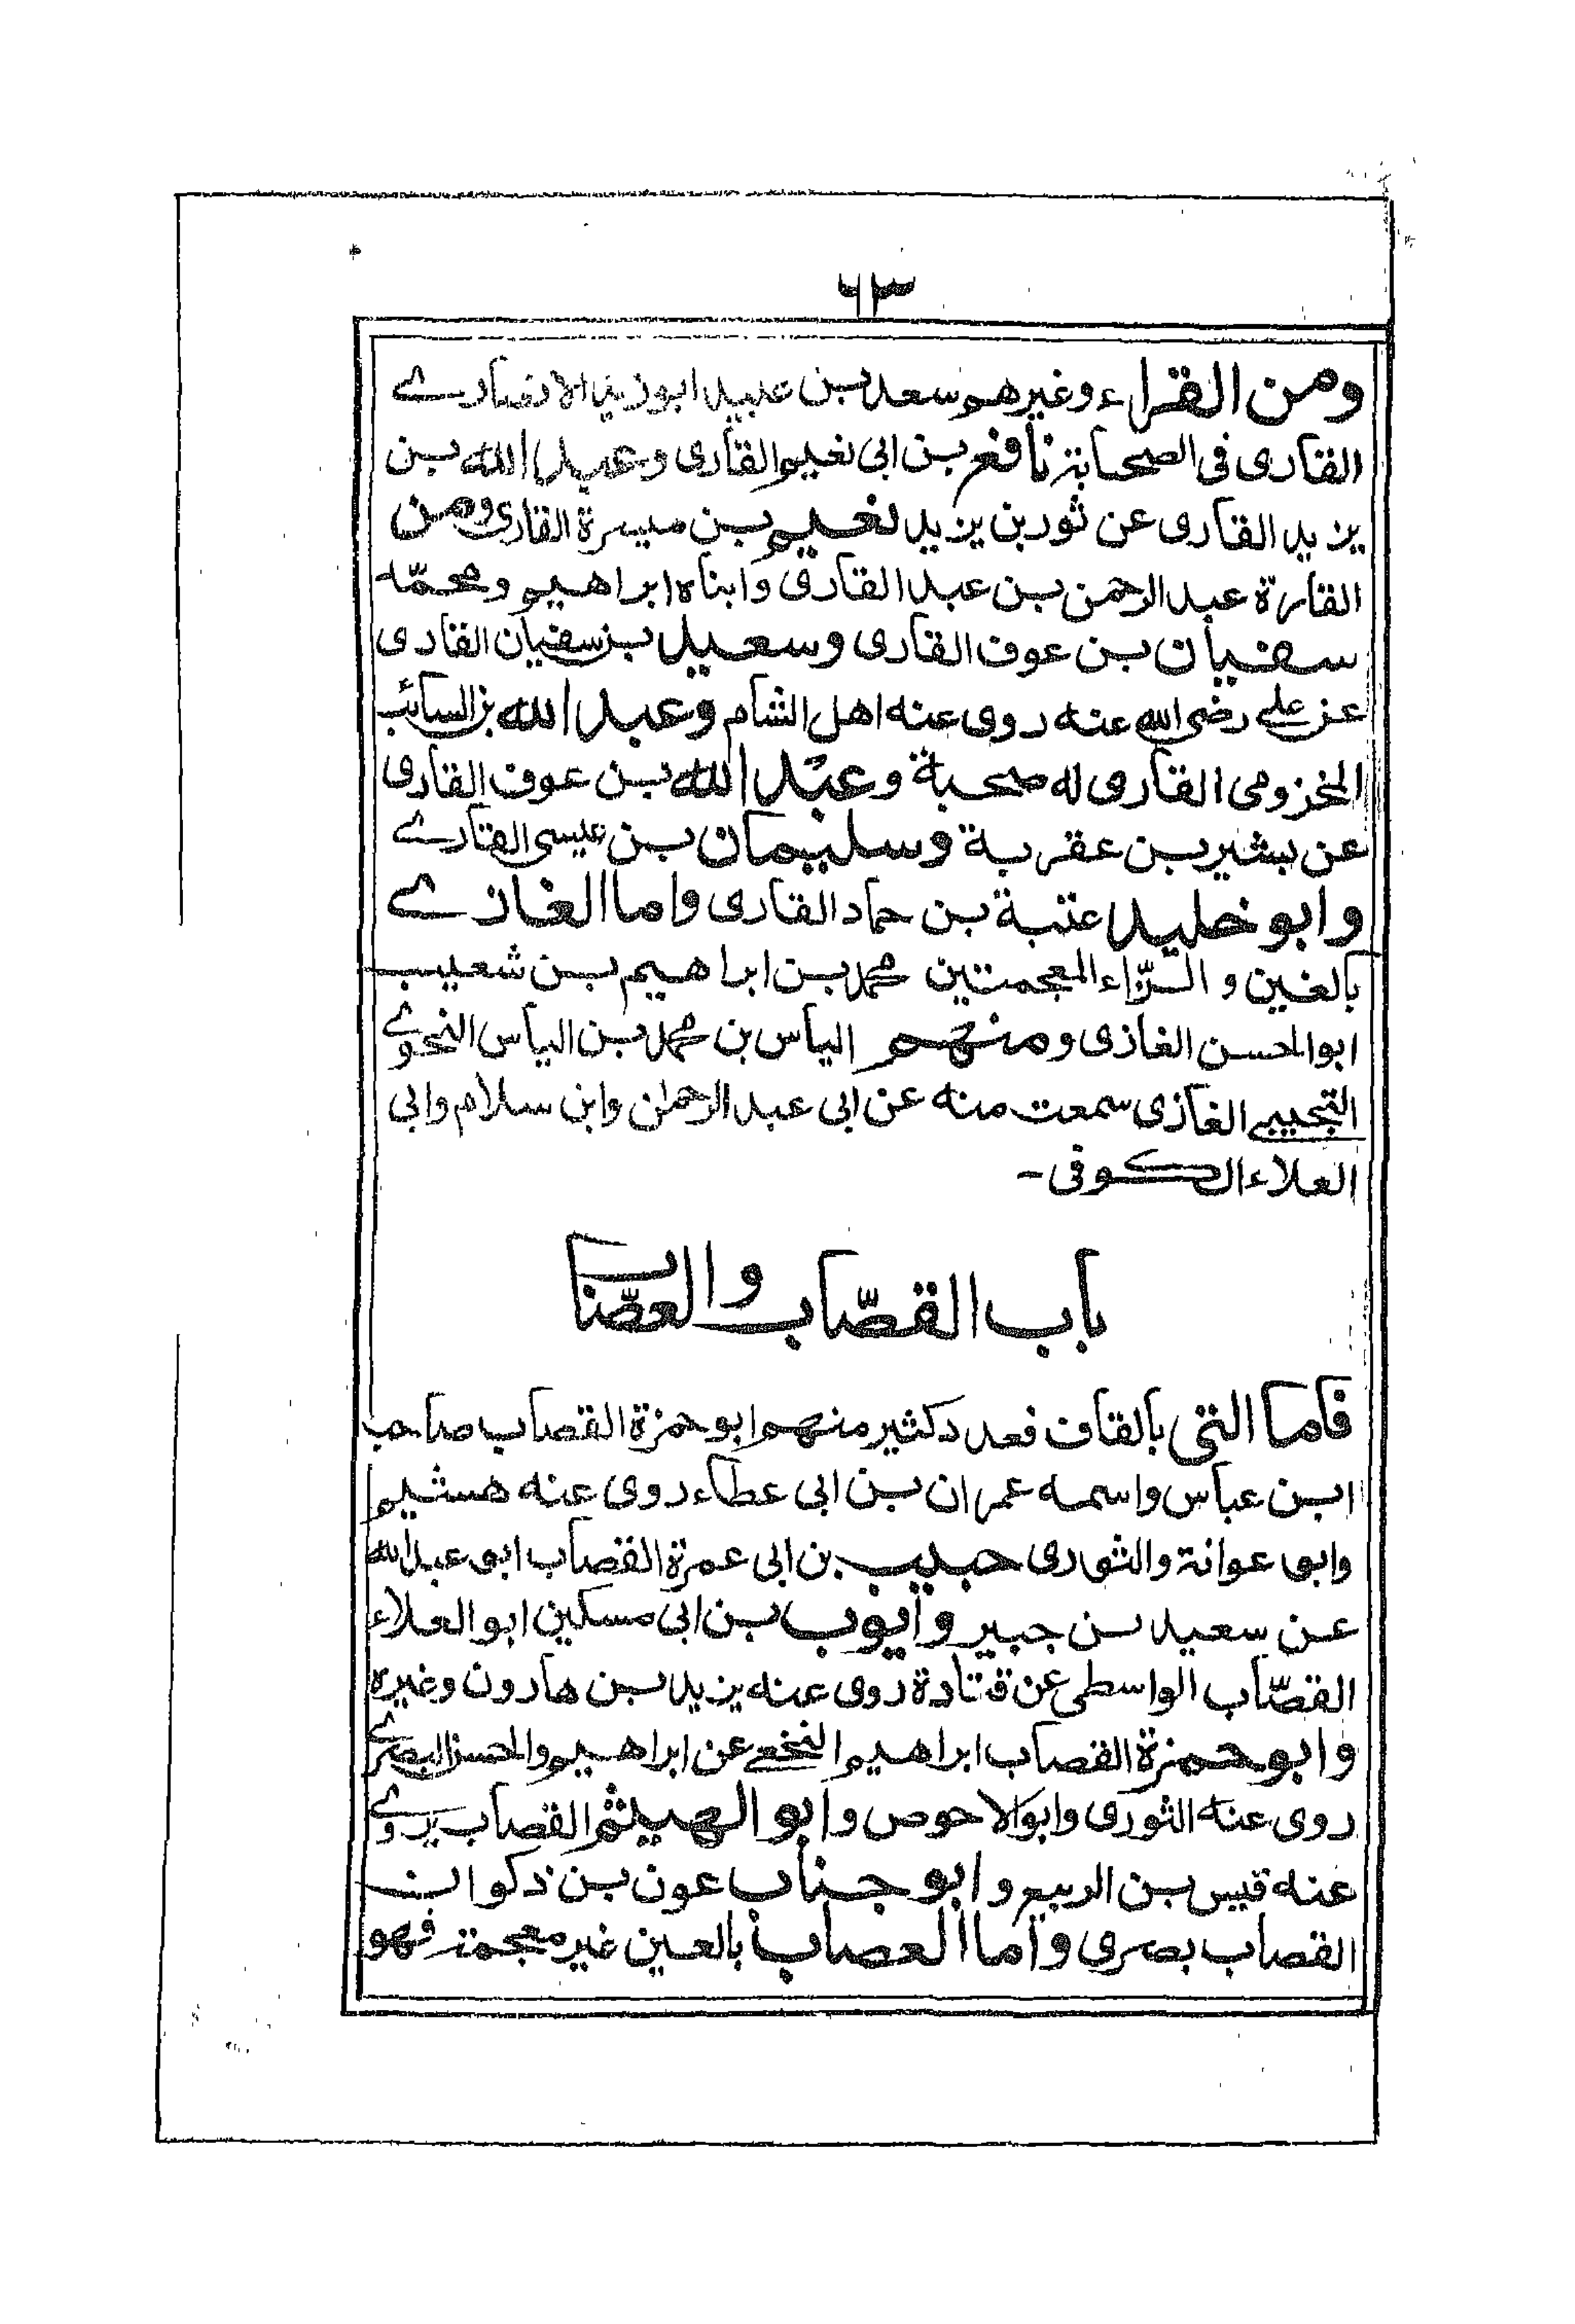 ٦٣
ومن القراء وغيرهم سعد بن عبيد ابو زيد الانصارے
القارى فى الصحابة نافع بن ابى نعيم القارى وعبد الله بن
يزيد القارى عن ثور بن يزيد نعيم بن ميسرة القارى ومن
القارة عبد الرحمن بن عبد القارى وابناه ابراهيم ومحمد
سفيان بن عوف القارى وسعيد بن سفيان القارى
عن على رضى الله عنه روى عنه اهل الشام وعبد الله بن السائب
المخزومى القارى له صحبة وعبد الله بن عوف القارى
عن بشير بن عقربة وسليمان بن عيسى القارے
وابو خليد عتبة بن حماد القارى واما الغازے
بالغين و الزّاء المعجمتين محمد بن ابراهيم بن شعيب
ابو الحسن الغازى ومنهم الياس بن محمد بن الياس النحوے
التجيبے الغازى سمعت منه عن ابى عبد الرحمان وابن سلام وابى
العلاء الكوفى -
باب القصّاب والعصّاب
فاما التى بالقاف فعدد كثير منهم ابو حمزة القصاب صاحب
ابن عباس واسمه عمران بن ابى عطاء روى عنه هشيم
وابو عوانة والثورى حبيب بن ابى عمرة القصاب ابو عبد الله
عن سعيد بن جبير وأيوب بن ابى مسكين ابو العلاء
القصّاب الواسطى عن قتادة روى عنه يزيد بن هارون وغيره
وابو حمزة القصاب ابراهيم النخعے عن ابراهيم والحسن البصرے
روى عنه الثورى وابو الاحوص وابو الهيثم القصاب يروے
عنه قيس بن الربيع وابو جناب عون بن ذكوان
القصاب بصرى وأما العصاب بالعين غير معجمة فهو